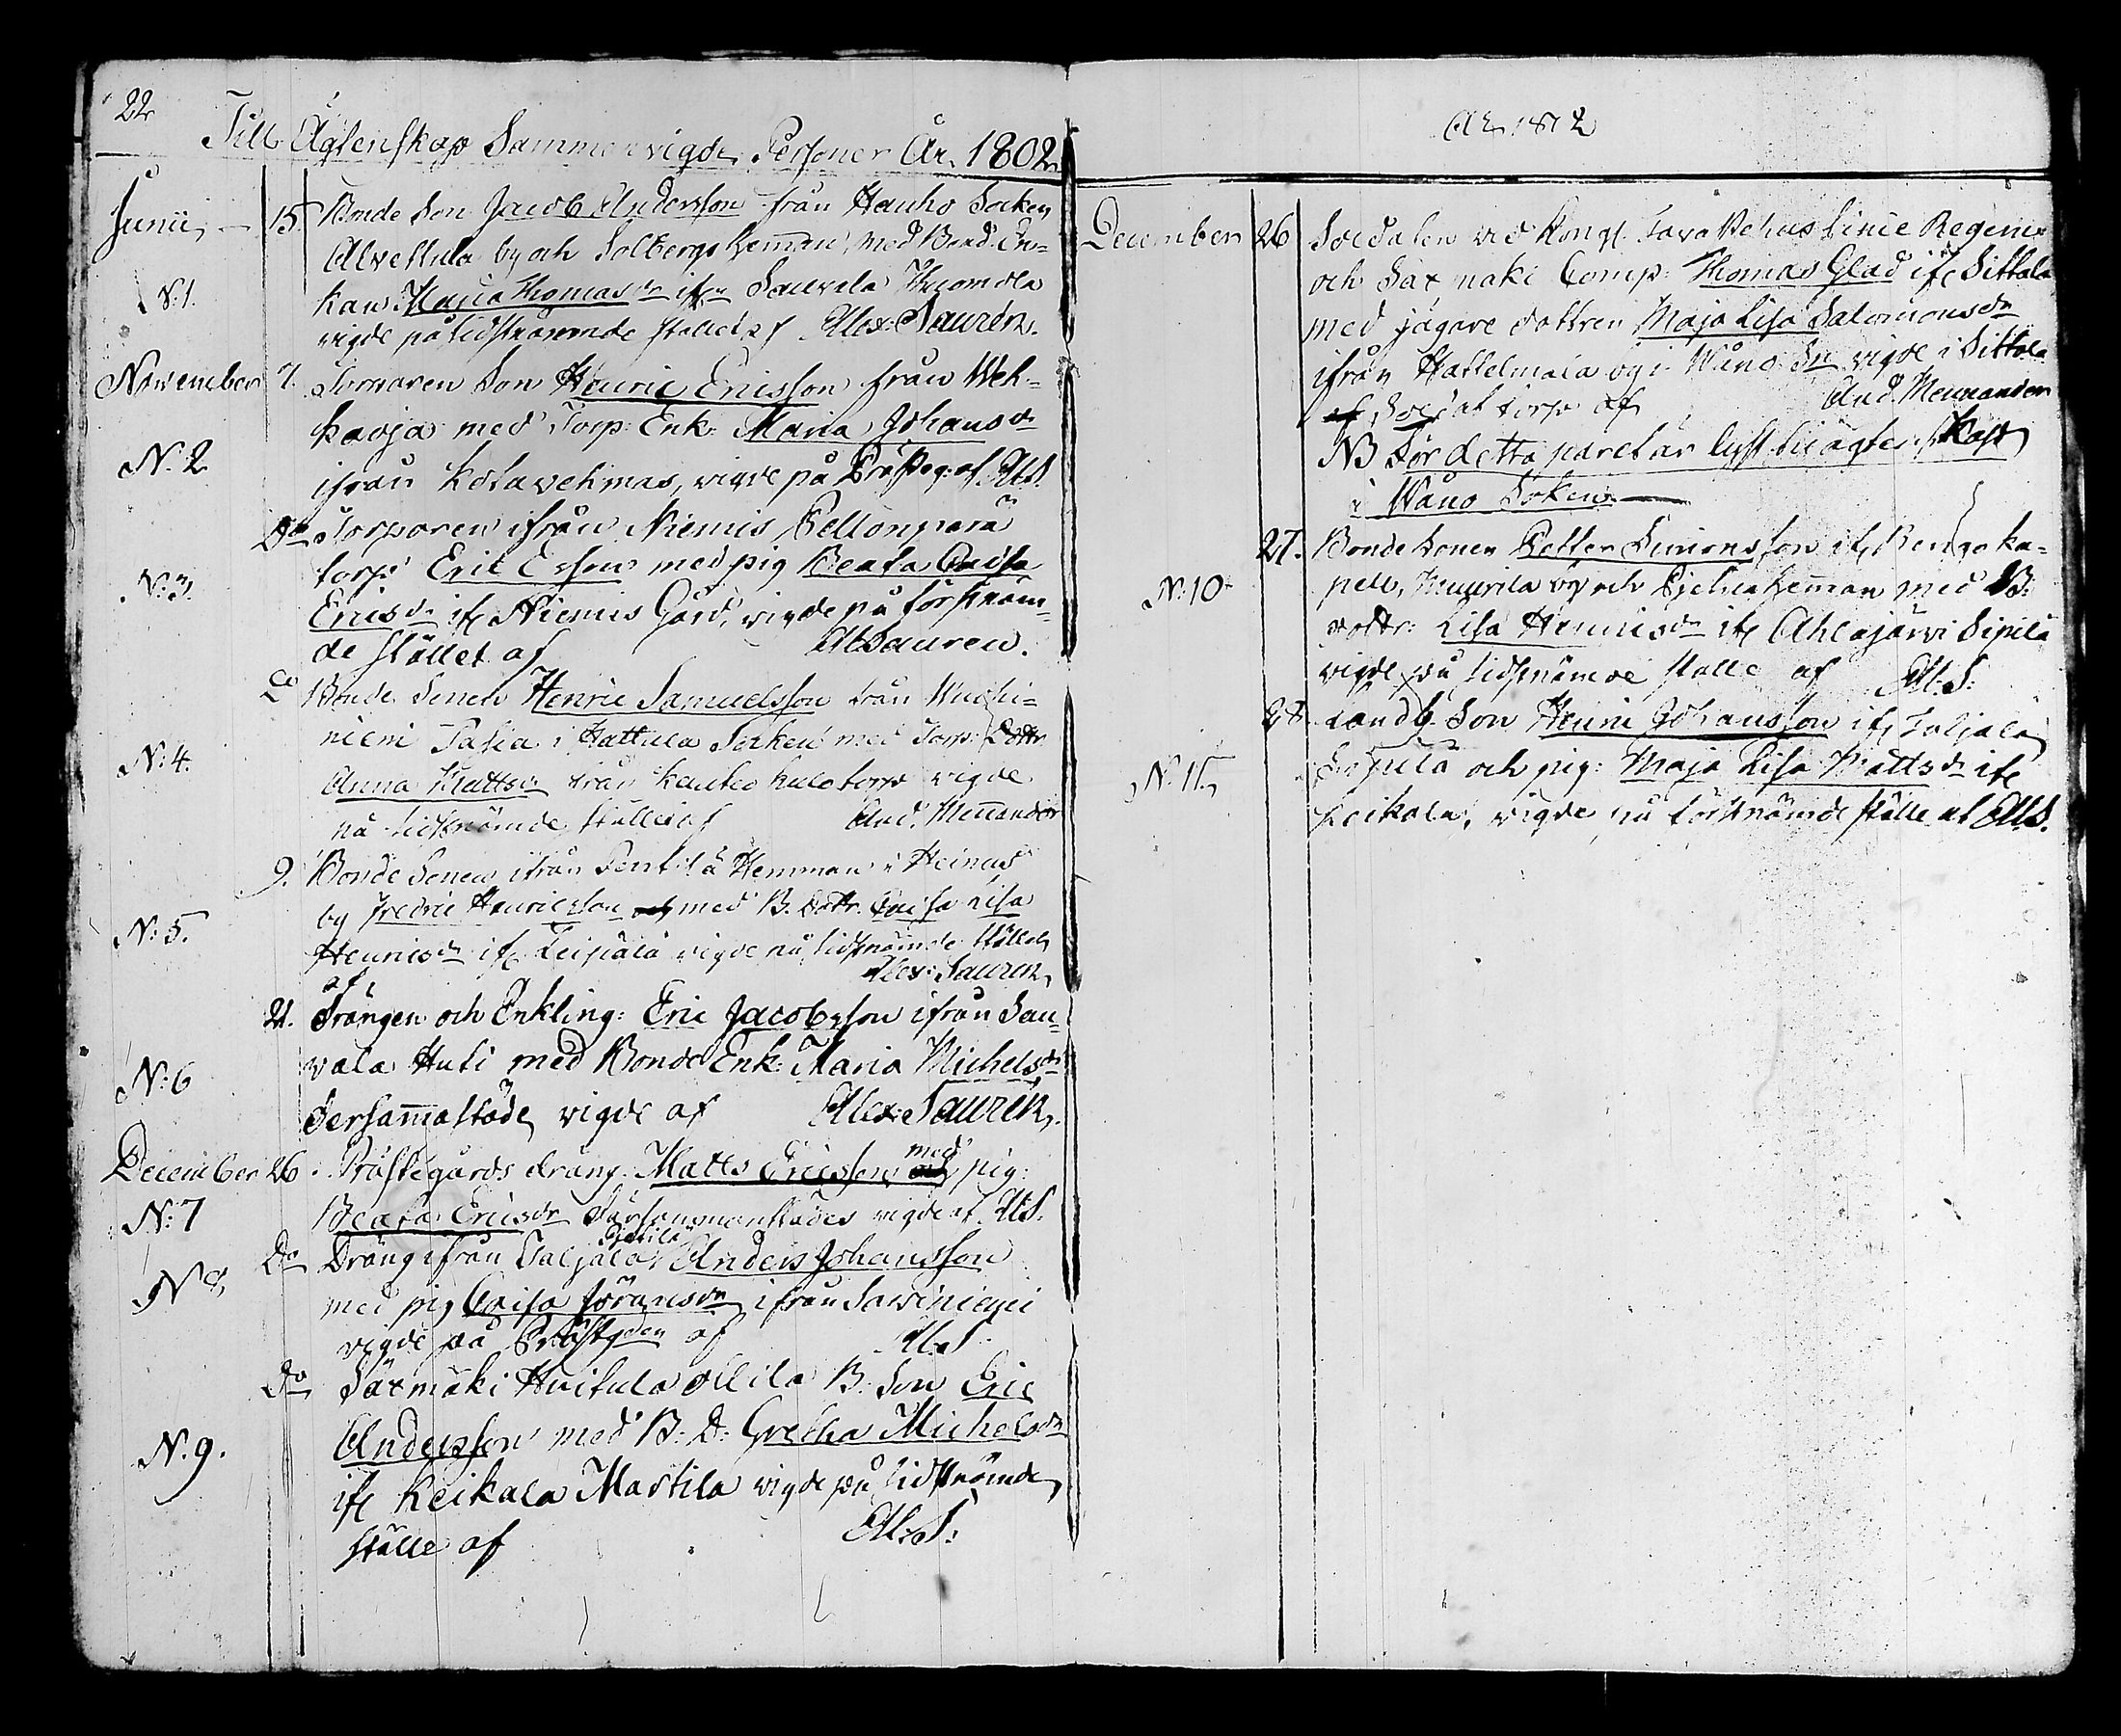 22
Till Ägtenskap Sammanvigde Personer År 1802
Junii 15. Bonde Son Jacob Andersson från Hauho Socken
Alvettula by och Solbergs Hemman, med Bond. En-
N:1. kan Maria Thomasdr ifrn Sauvala Tuomola
vigde på sidstnämnde stället af Alex: Saurén.
November 7. Torparen Son Henric Ericsson från Weh-
karja med Torp: Enk: Maria Johansdr
N:2 ifrån Kotavehmas, vigde på Prösteg: af Al.S.
Do Torparen ifrån Niemis Peltonperä
N:3. torp Eric Ersson med pig Beata Caisa
Ericsdr ifr Niemis Gård, vigde på förstnäm-
de stället af Al Sauren.
Do Bonde Sonen Henric Samuelsson från
N:4. niemi i Hattula Socken med Torp: Dottr
Anna Mattsdr från torp vigde
på sidstnämde stället af And. Menander
9. Bonde Sonen ifrån Penttilä Hemman i Heinus
N:5. by Fredric Henricsson och med B. Dottr. Caisa Lisa
Henricsdr ifr Leipälä vigde på sidstnämde stället
af Alex: Sauren
21. Drängen och Enkling: Eric Jacobsson ifrån Sau-
N:6 vala Huti med Bonde Enk: Maria Michelsdr
dersammastäde vigde af Alex: Saurén.
December 26. Prästegårds dräng Matts Ericsson och med pig:
N:7 Beata Ericsdr dersammanstädes vigde af Al.S.
Do Dräng ifrån Taljala Anders Johansson
N:8 med pig Caisa Göransdr ifrån Saviniemi
vigde på Prästgden af Al.S.
Do Säxmäki Huitula Ollila B: Son Eric
N:9. Andersson med B: D: Gretha Michelsdr
ifr Leikala Mastila vigde på sidstnämde
ställe af Al:S:
År 1802
December 26 Soldaten vid Kongl. Tavastehus Linie Regemen
och Säxmäki Comp: Thomas Glad ifr Sittala
med jägare dottren Maja Lisa Salomonsdr
ifrån Hattelmala by i Wånå Sn vigde i Sittala
af Soldat torp af And. Menander
NB För detta paret är lyst til ägtenskap
i Wånå Soken
27. Bonde Sonen Petter Simonsson ifr Rengo ka-
N:10. pell, Muurila by och Hemman med B:
dottr: Lisa Henricsdr ifr Ahlajärvi Sipilä
vigde på sidstnämde ställe af Al:S:
28. Landb. Son Henric Johansson ifr Taljala
N:11. Seppälä och pig: Maja Lisa Mattsdr ifr
Leikala, vigde på förstnämde ställe af Al.S.